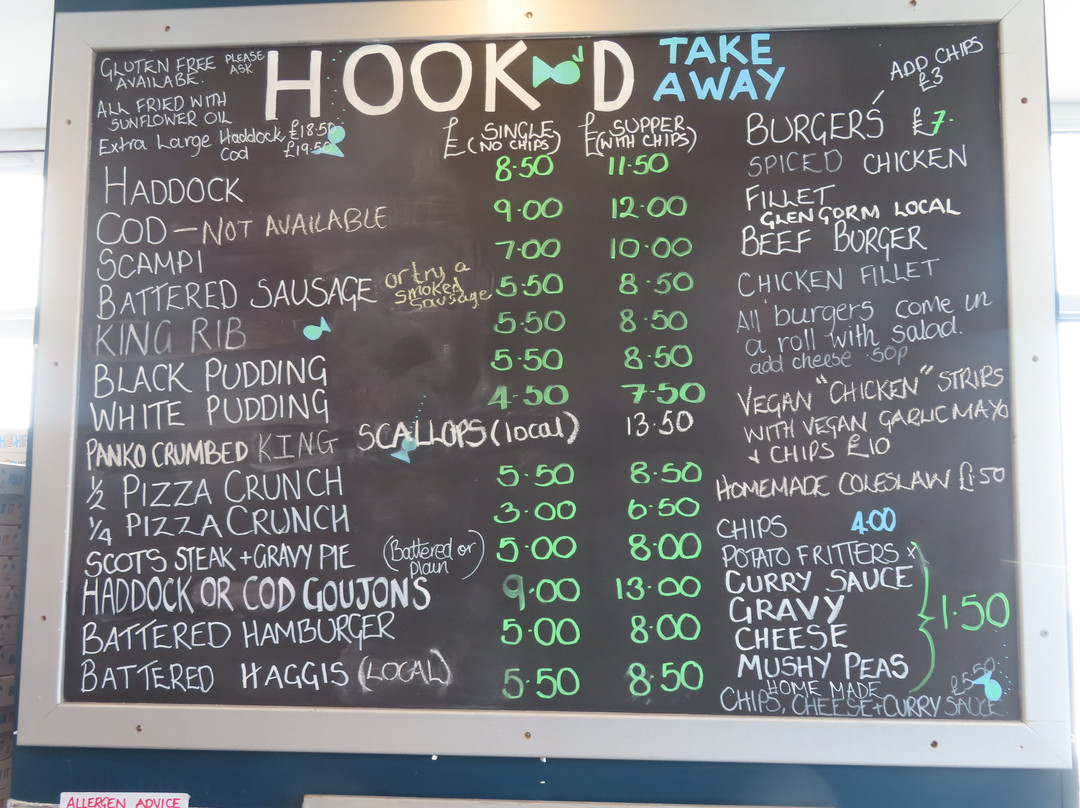 GLUTEN FREE PLEASE ASK
AVAILABE.
ALL FRIED WITH
SUNFLOWER OIL
Extra Large Haddock £18.50
Cod £19.50
HOOK D TAKE AWAY
£ SINGLE (NO CHIPS) £ SUPPER (WITH CHIPS)
HADDOCK 8.50 11.50
COD – NOT AVAILABLE 9.00 12.00
SCAMPI 7.00 10.00
BATTERED SAUSAGE or try a smoked sausage 5.50 8.50
KING RIB 5.50 8.50
BLACK PUDDING 5.50 8.50
WHITE PUDDING 4.50 7.50
PANKO CRUMBED KING SCALLOPS (local) 13.50
1/2 PIZZA CRUNCH 5.50 8.50
1/4 PIZZA CRUNCH 3.00 6.50
SCOTS STEAK + GRAVY PIE (Battered or plain) 5.00 8.00
HADDOCK OR COD GOUJONS 9.00 13.00
BATTERED HAMBURGER 5.00 8.00
BATTERED HAGGIS (LOCAL) 5.50 8.50
ADD CHIPS
£3
BURGERS £7.
SPICED CHICKEN
FILLET
GLENGORM LOCAL
BEEF BURGER
CHICKEN FILLET
All burgers come in
a roll with salad.
add cheese .50p
VEGAN "CHICKEN" STRIPS
WITH VEGAN GARLIC MAYO
+ CHIPS £10
HOMEMADE COLESLAW £1.50
CHIPS 4.00
POTATO FRITTERS
CURRY SAUCE
GRAVY 1.50
CHEESE
MUSHY PEAS
HOME MADE £5.50
CHIPS, CHEESE + CURRY SAUCE
ALLERGEN ADVICE